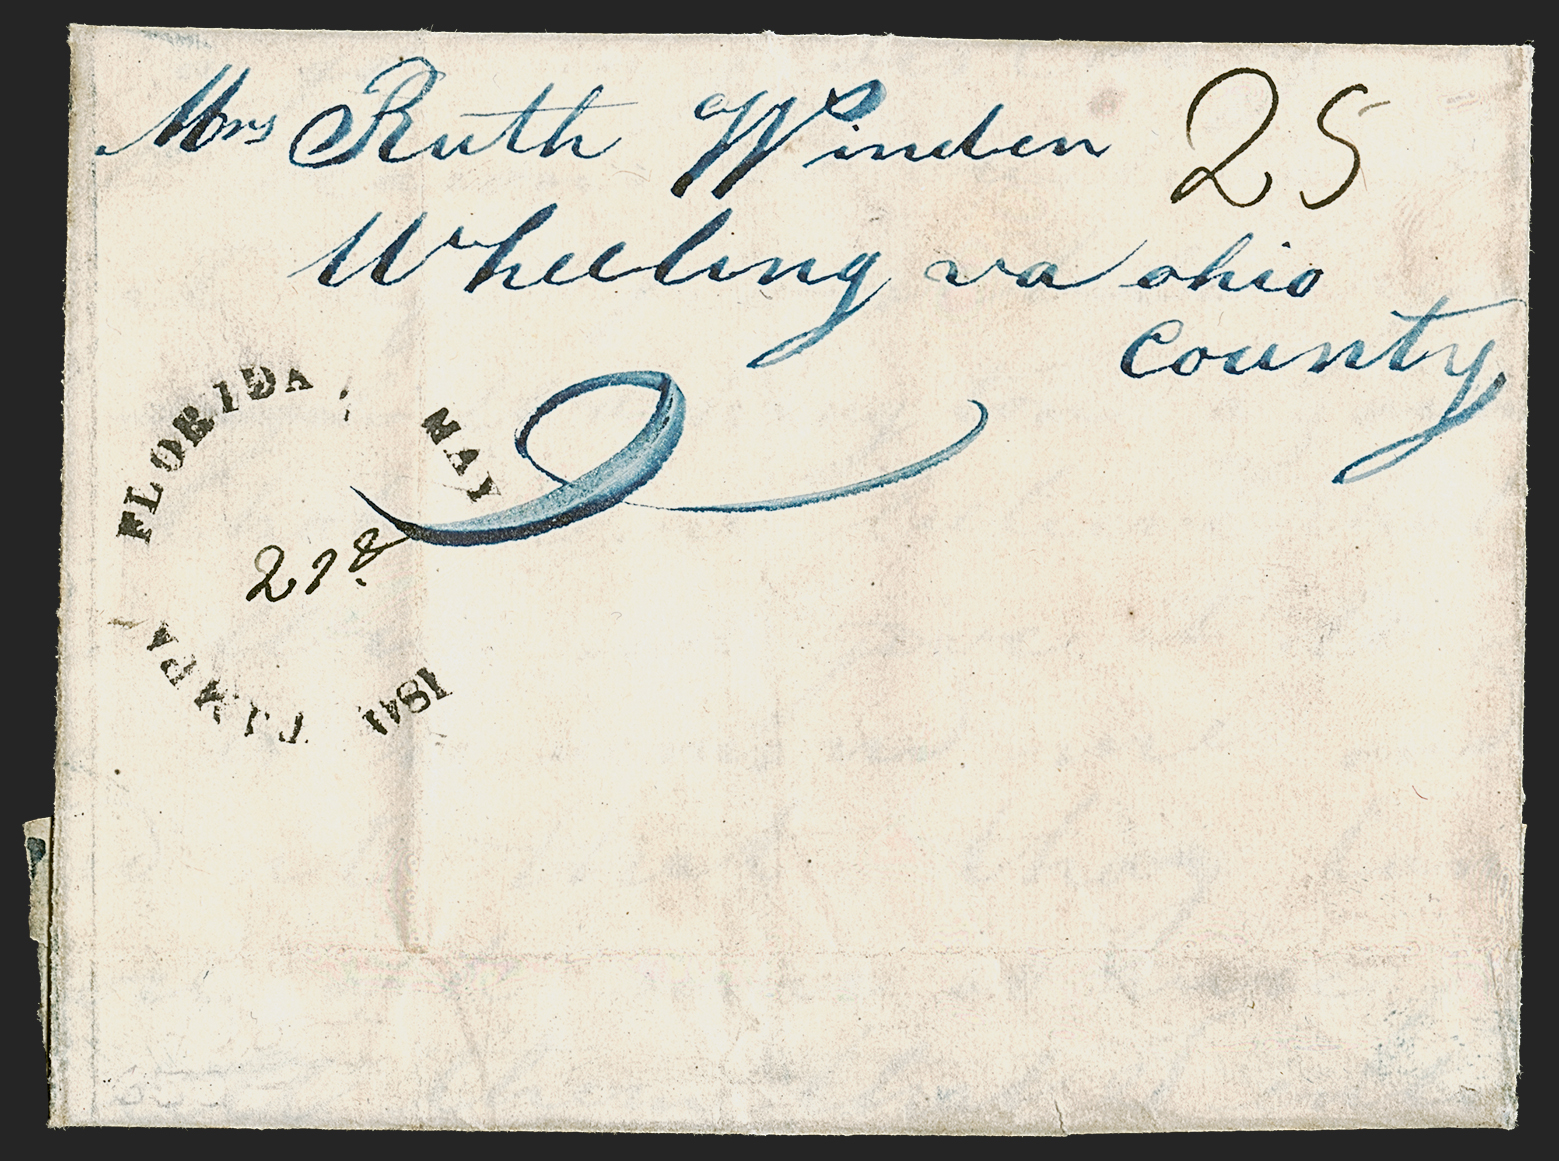 Mrs Ruth Winden 25
Wheeling va ohio
county
FLORIDA
MAY
TAMPA
1841